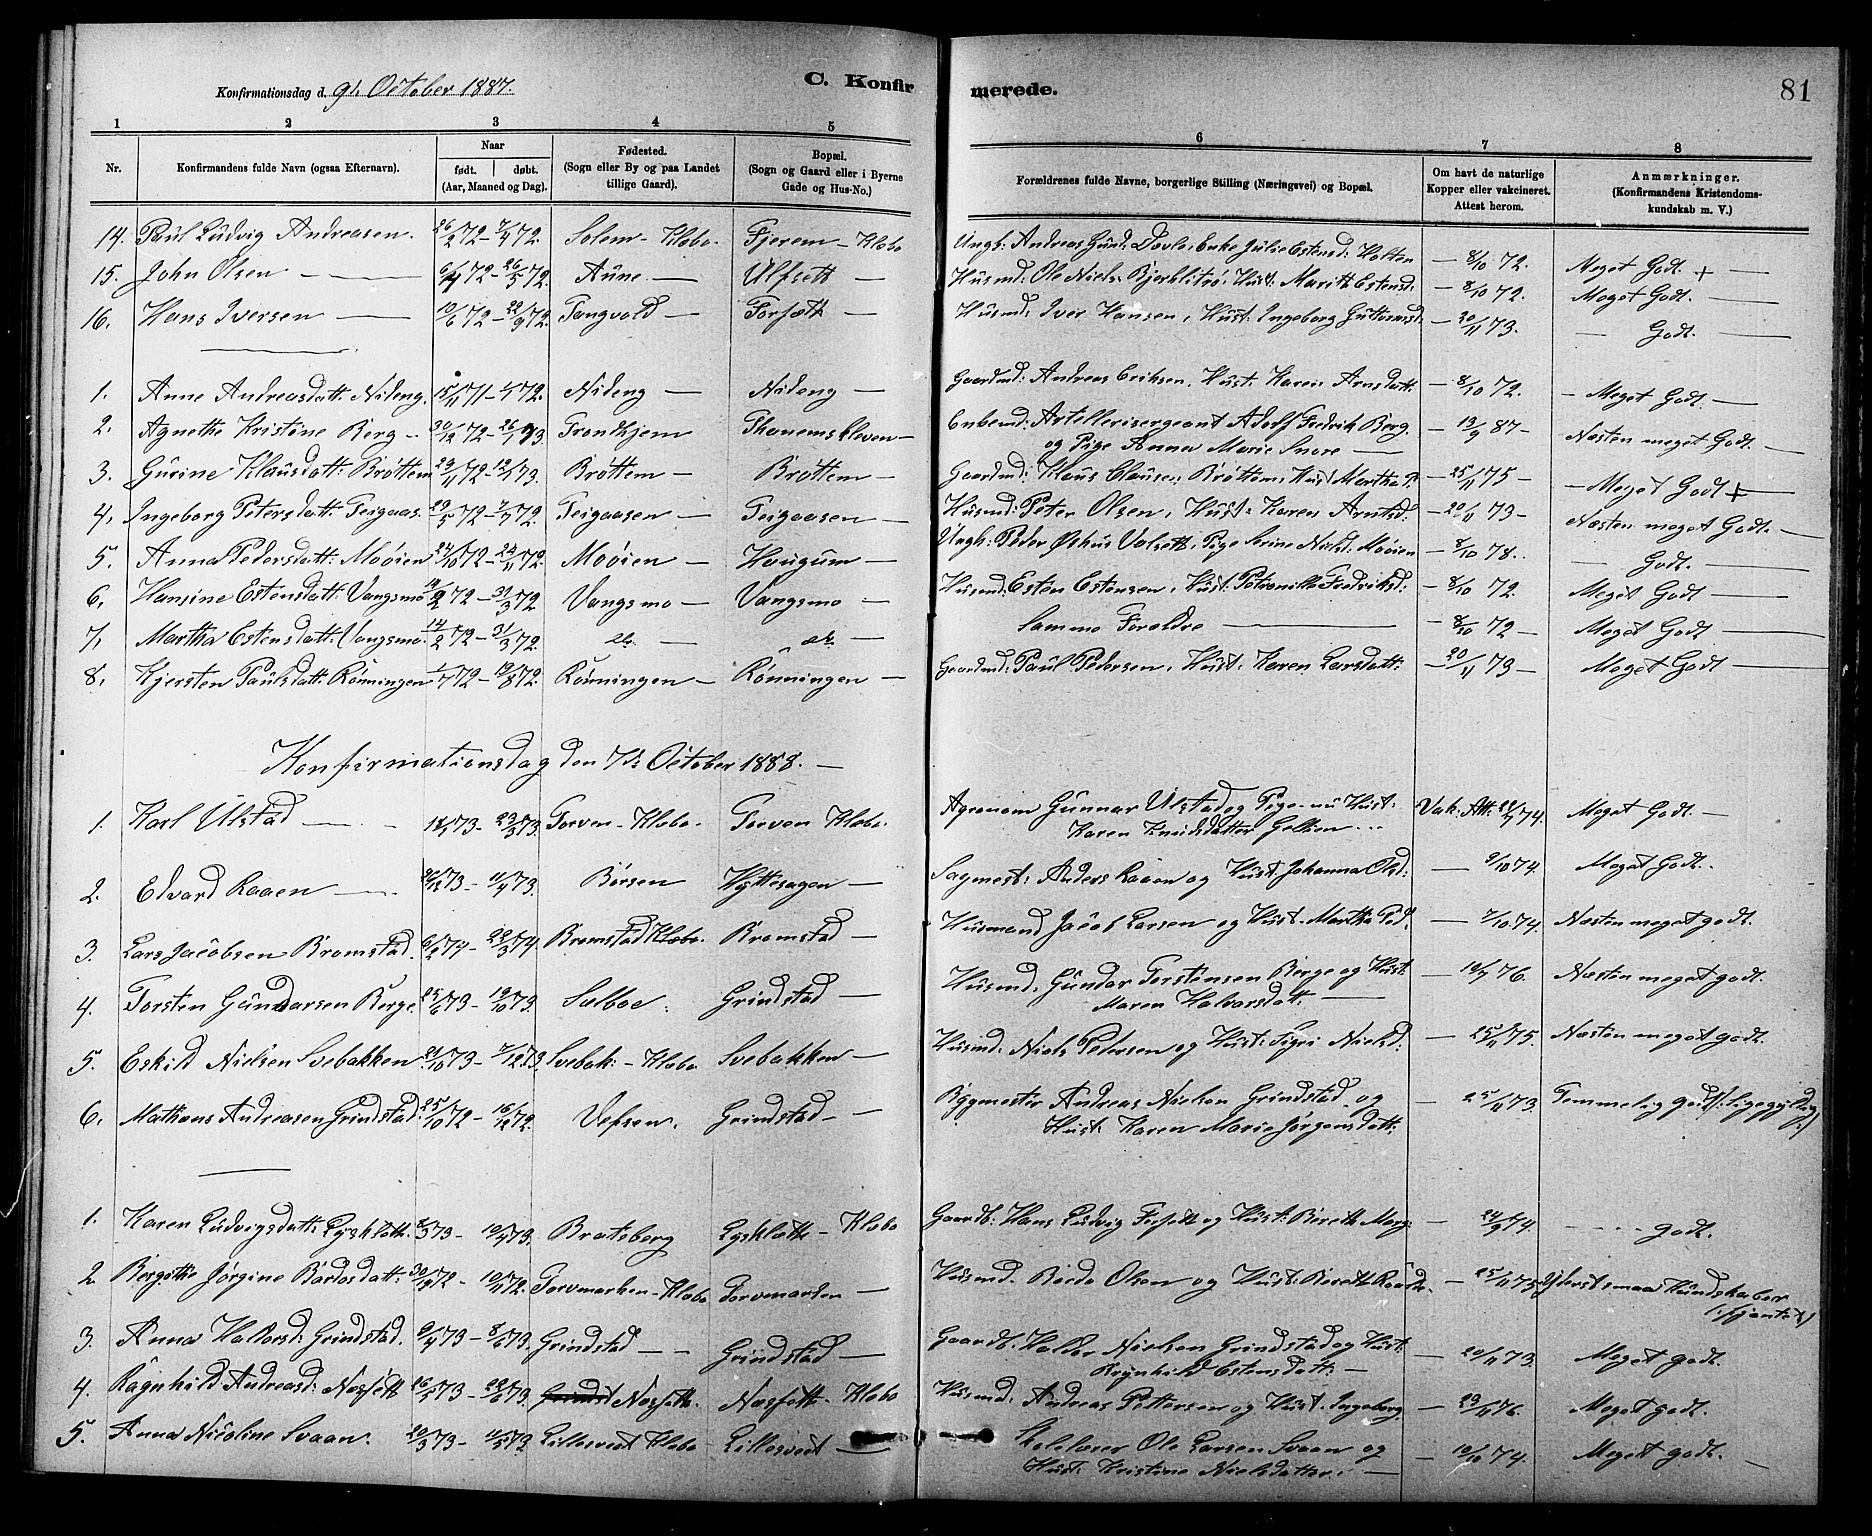 Konfirmationsdag d. 9de October 1887.
C. Konfir
merede.
81
1 2 3 4 5 6 7 8
Nr.
Konfirmandens fulde Navn (ogsaa Efternavn).
Naar
født. døbt.
(Aar, Maaned og Dag).
Fødested.
(Sogn eller By og paa Landet
tillige Gaard).
Bopæl.
(Sogn og Gaard eller i Byerne
Gade og Hus-No.)
Forældrenes fulde Navne, borgerlige Stilling (Næringsvei) og Bopæl.
Om havt de naturlige
Kopper eller vakcineret.
Attest herom.
Anmærkninger.
(Konfirmandens Kristendoms-
kundskab m. V.)
14. Paul Ludvig Andreasen. 26/2 72 – 7/4 72. Solem – Klæbo. Fjerem – Klæbo Ungk: Andreas Gund: Dovle, Enke Julie Estensd: Holten – 8/10 72. Meget Godt. –
15. John Olsen – 72 – 26/5 72. Aune – Ulfsett – Husmd: Ole Niels: Bjerklitrø, Hust: Marith Estensd: – 8/10 72. Meget Godt. –
16. Hans Iversen – 10/6 72 – 22/9 72. Tangvold – Forsæth – Husmd: Iver Hansen, Hust: Ingeborg Guttormsd: – 20/11 73. – Godt. –
1. Anne Andreasdatt: Nideng. 15/11 71 – 1/1 72. Nideng – Nideng – Gaardmd: Andreas Eriksen, Hust: Karen Arnsdatt: – 8/10 72. – Meget Godt. –
2. Agnethe Kristine Berg – 30/12 72 – 26/1 73. Trondhjem Thanemskleven – Enkemd: Artillerisergeant Adolf Fredrik Berg.
og Pige Anna Marie Snare – – 13/9 87 – Næsten meget Godt. –
3. Gurine Klausdatt: Brøttem 23/11 72 – 12/1 73. Brøttem – Brøttem – Gaardmd: Klaus Clausen Brøttem, Hust Martha P – 25/11 75 – – Meget Godt –
4. Ingeborg Petersdatt: Teigaas. 29/5 72 – 7/7 72. Teigaasen – Teigaasen – Husmd: Peter Olsen, Hust: Karen Arntsd: – 20/11 73 – Næsten meget Godt. –
5. Anna Pedersdatt: Moøien 24/10 72 – 24/11 72. Moøien – Haugum – Ungk: Peder Øshus Valsett, Pige Serine Nielsd: Moøien – 8/10 78. – Godt. –
6. Hansine Estensdatt: Vangsmo 14/2 72 – 31/3 72 Vangsmo – Vangsmo – Husmd: Esten Estensen, Hust: Petronille Fredriksd: – 8/10 72. Meget Godt –
7. Martha Estensdatt: Vangsmo. 14/2 72 – 31/3 72. do. – do. – Samme Forældre – – 8/10 72 – Meget Godt –
8. Kjersten Paulsdatt: Rønningen 1/7 72 – 18/8 72. Rønningen – Rønningen – Gaardmd: Paul Pedersen, Hust: Karen Larsdatt: – 20/11 73 – Meget Godt –
Konfirmationsdag den 7de October 1888. –
1. Karl Ulstad – 18/1 73 – 23/3 73. Torven – Klæbo. Torven Klæbo. Agronom Gunnar Ulstad og Pige nu Hust:
Karen Knudsdatter Gellien . . . Vak: Att: 74. Meget Godt. –
2. Edvard Raaen – 73 – 11/4 73. Børsen Hyttesagen – Sagmest: Anders Raaen og Hust: Johanna Olsd: – 9/10 74. Meget Godt.
3. Lars Jacobsen Bromstad. 6/2 74 – 22/3 74. Bromstad Klæbo. Bromstad – Husmand Jacob Larsen og Hust: Martha Ped: – 7/10 74. Næsten meget godt.
4. Torsten Gundarsen Berge. 25/6 73 – 19/10 73. Sælboe. Grindstad – Husmd. Gundar Torstensen Berge og Hust:
Maren Halvorsdatt: – – 76. Næsten meget godt.
5. Eskild Nielsen Svebakken. 21/10 73 – 7/12 73. Svebak: – Klæbo Svebakken – Husmd: Niels Petersen og Hust: Sigri Nielsd: – 25/11 75. Næsten meget godt.
6. Mathæus Andreasen Grindstad. 25/10 72 – 16/12 72. Vefsen. Grindstad – – Bygmester Andreas Nielsen Grindstad og
Hust: Karen Marie Jørgensdatt: – 25/11 73. Temmelig godt
1. Karen Ludvigsdatt: Lysklæth: 8/3 73 – 10/4 73. Bratsberg Lysklætte – Klæbo Gaardb: Hans Ludvig Forseth og Hust: Bereth Marg: – 24/9 74. – godt.
2. Bergithe Jørgine Bardosdatt: 30/10 72 – 10/11 72. Torvmarken – Klæbo Torvmarken – Husmd. Bardo Olsen og Hust: Bereth – 25/11 75 Yderst smaa Kundskaber
3. Anna Haldorsd: Grindstad. 9/4 73 – 8/6 73. Grindstad – Grindstad – Gaardb: Haldor Nielsen Grindstad og Hust:
Ragnhild Estensdatt: – – 20/11 73. Meget godt.
4. Ragnhild Andreasd: Næsseth 26/5 73 – 22/6 73. Næsseth. Næsseth – Klæbo Husmd: Andreas Pettersen og Hust. Ingeborg – 23/11 76. Meget godt.
5. Anna Nicoline Svaan. 20/3 73 – 11/5 73. Lillesvedt Klæbo Lillesvedt – Skolelærer Ole Larsen Svaan og
Hust: Kristine Nielsdatter. – – 10/10 74. Meget godt. –